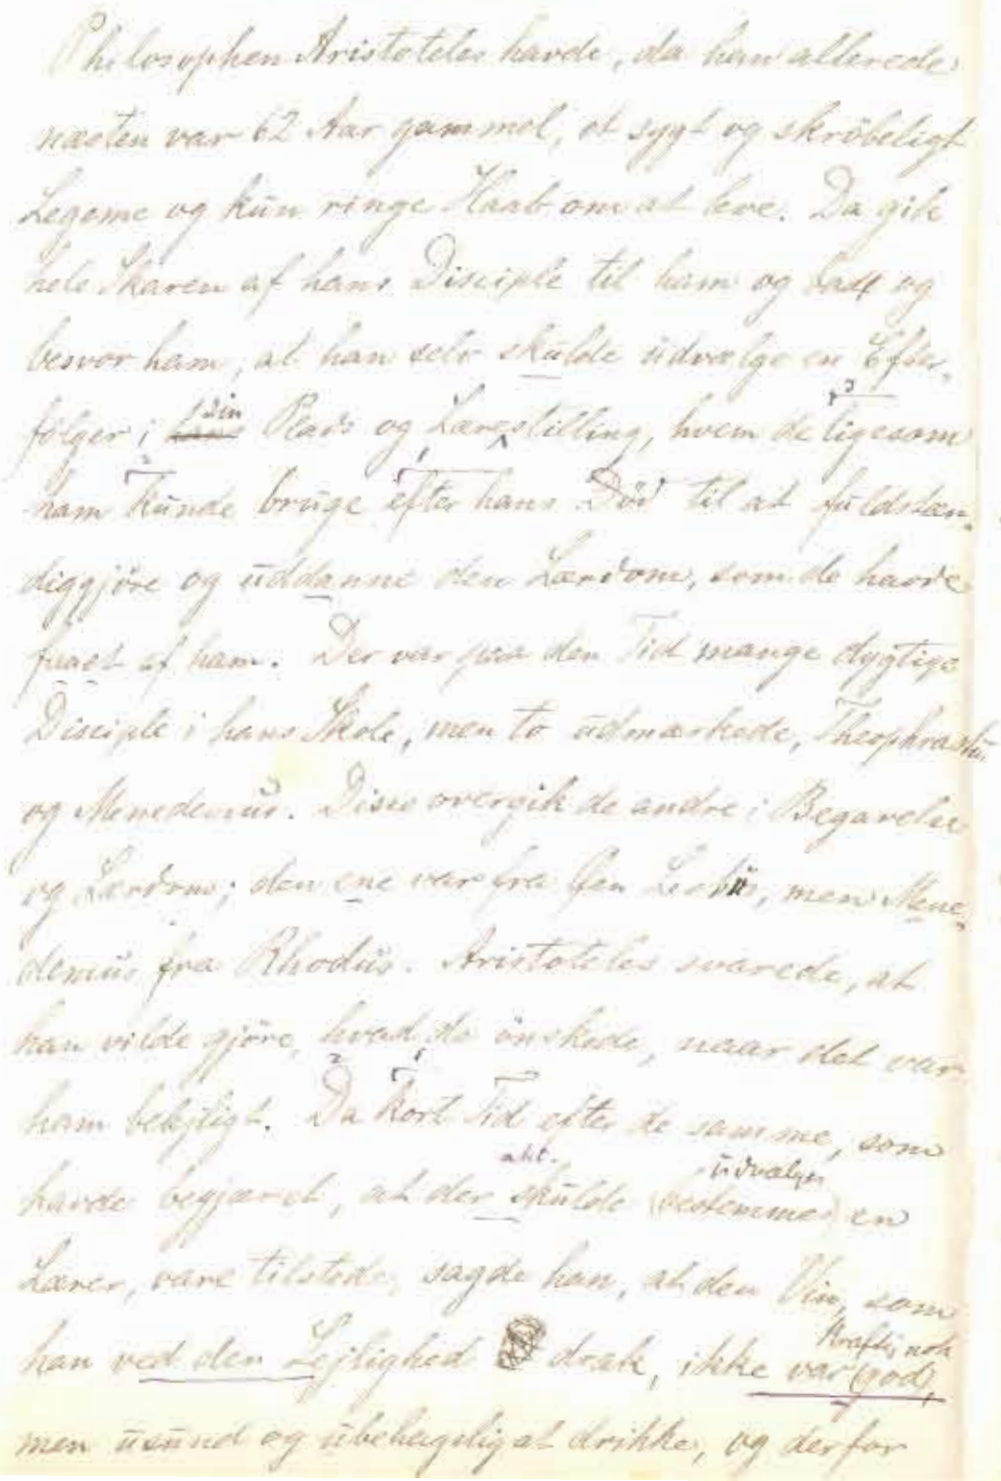 Philosophen Aristoteles havde, da han allerede
næsten var 62 Aar gammel, et sygt og skröbeligt
Legeme og kun ringe Haab om at leve. Da gik
hele Skaren af hans Disciple til ham og bad og
besvor ham, at han selv skulde udvælge en Efter-
følger i sin Plads og Lærestilling, hvem de ligesom
ham kunde bruge efter hans Död til at fuldstæn-
diggjöre og uddanne den Lærdom, som de havde
faaet af ham. Der var paa den Tid mange dygtige
Disciple i hans Skole, men to udmærkede, Theophrastus
og Menedemus. Disse overgik de andre i Begavelse
og Lærdom; den ene var fra Öen Lesbus, men Mene-
demus fra Rhodus. Aristoteles svarede, at
han vilde gjöre, hvad de önskede, naar det var
ham belejligt. Da kort Tid efter de samme, som
akt. udvælges
havde begjæret, at der skulde (bestemmes) en
Lærer, vare tilstede, sagde han, at den Vin, som
kraftig nok
han ved den Lejlighed drak, ikke var (god),
men usund og ubehagelig at drikke, og derfor